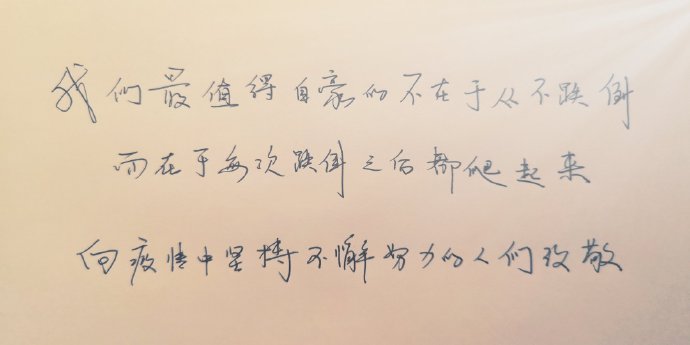 我们最值得自豪的不在于从不跌倒
而在于每次跌倒之后都爬起来
向疫情中坚持不懈努力的人们致敬